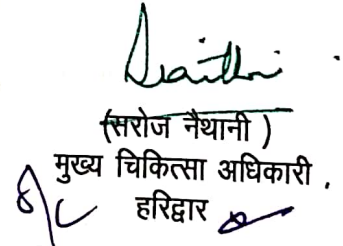 (सरोज नैथानी )
मुख्य चिकित्सा अधिकारी .
हरिद्वार